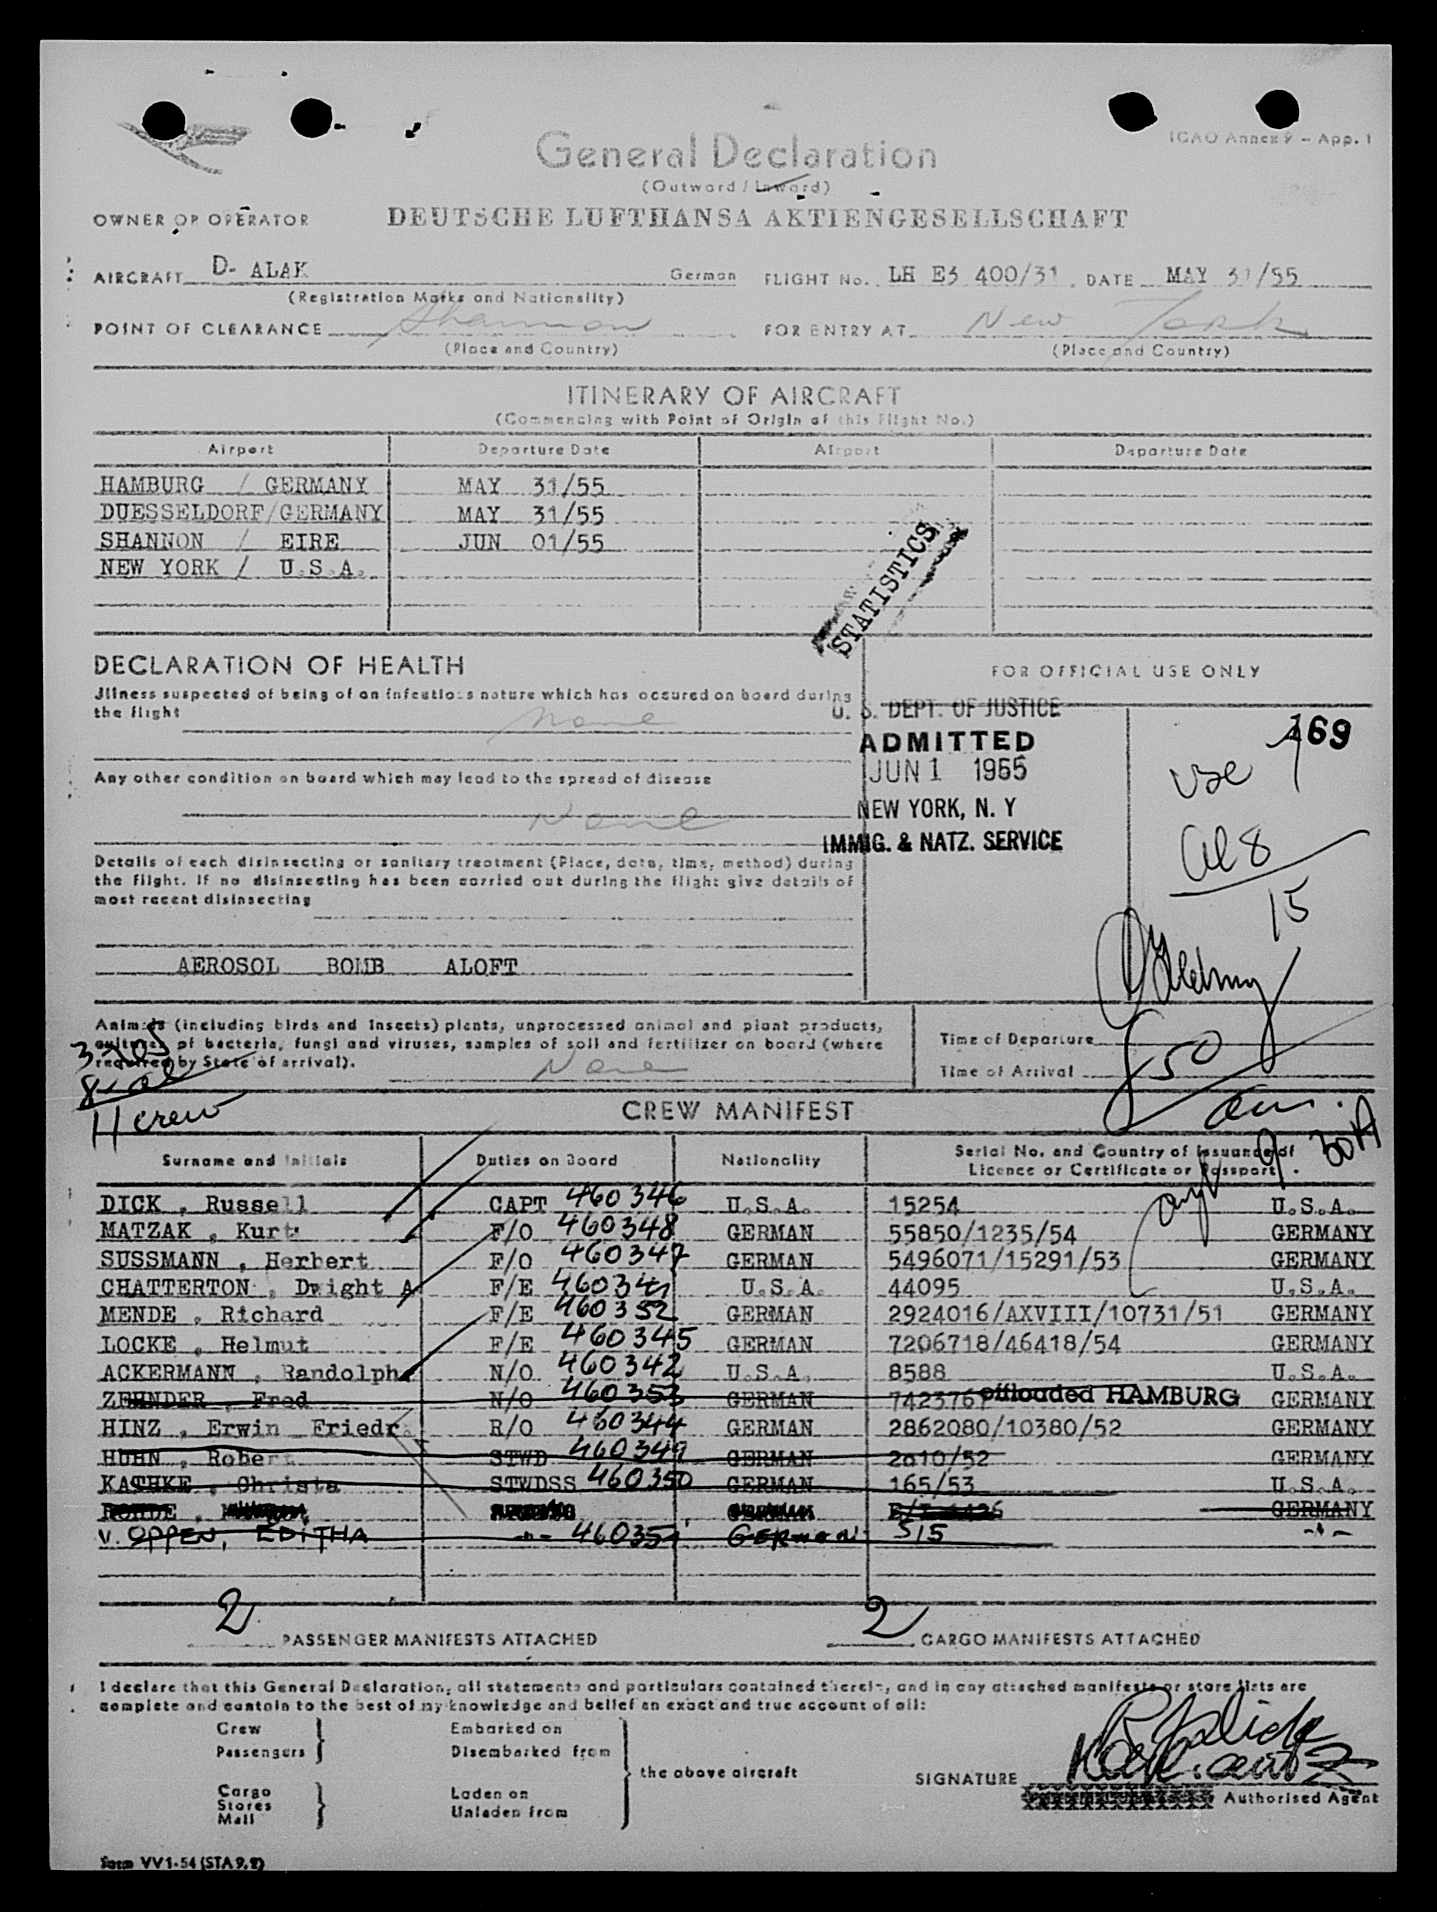 ICAO Annex 9 - App. 1
General Declaration
(Outward / Inward)
OWNER OR OPERATOR DEUTSCHE LUFTHANSA AKTIENGESELLSCHAFT
AIRCRAFT D- ALAK German FLIGHT No. LH E3 400/31 DATE MAY 31/55
(Registration Marks and Nationality)
POINT OF CLEARANCE Shannon FOR ENTRY AT New York
(Place and Country) (Place and Country)
ITINERARY OF AIRCRAFT
(Commencing with Point of Origin of this Flight No.)
Airport Departure Date Airport Departure Date
HAMBURG / GERMANY MAY 31/55
DUESSELDORF/GERMANY MAY 31/55
SHANNON / EIRE JUN 01/55
NEW YORK / U.S.A.
STATISTICS
DECLARATION OF HEALTH FOR OFFICIAL USE ONLY
Illness suspected of being of an infectious nature which has occured on board during
the flight None
U. S. DEPT. OF JUSTICE
ADMITTED 169
JUN 1 1955
NEW YORK, N. Y
IMMIG. & NATZ. SERVICE
use
al 8
15
Any other condition on board which may lead to the spread of disease
None
Details of each disinsecting or sanitary treatment (Place, date, time, method) during
the flight. If no disinsecting has been carried out during the flight give details of
most recent disinsecting
AEROSOL BOMB ALOFT
Animals (including birds and insects) plants, unprocessed animal and plant products,
cultures of bacteria, fungi and viruses, samples of soil and fertilizer on board (where
required by State of arrival). None
Time of Departure
Time of Arrival 850 am.
8 al
11 crew
CREW MANIFEST
Surname and Initials Duties on Board Nationality Serial No. and Country of Issuance of
Licence or Certificate or Passport
DICK , Russell CAPT 460346 U.S.A. 15254 U.S.A.
MATZAK , Kurt F/O 460348 GERMAN 55850/1235/54 GERMANY
SUSSMANN , Herbert F/O 460347 GERMAN 5496071/15291/53 GERMANY
CHATTERTON , Dwight A F/E U.S.A. 44095 U.S.A.
MENDE , Richard F/E 460352 GERMAN 2924016/AXVIII/10731/51 GERMANY
LOCKE , Helmut F/E 460345 GERMAN 7206718/46418/54 GERMANY
ACKERMANN , Randolph N/O 460342 U.S.A. 8588 U.S.A.
ZEHNDER , Fred N/O 460353 GERMAN 7423767 offloaded HAMBURG GERMANY
HINZ , Erwin Friedr. R/O 460344 GERMAN 2862080/10380/52 GERMANY
HUHN , Robert STWD 460349 GERMAN 2010/52 GERMANY
KATHKE , Christa STWDSS 460350 GERMAN 165/53 U.S.A.
ROHDE , GERMANY
v. OPPEN, EDITHA -"- 460351 GERMAN 515 -"-
2 PASSENGER MANIFESTS ATTACHED 2 CARGO MANIFESTS ATTACHED
I declare that this General Declaration, all statements and particulars contained therein, and in any attached manifests or store lists are
complete and contain to the best of my knowledge and belief an exact and true account of all:
Crew Embarked on
Passengers Disembarked from
the above aircraft
Cargo Laden on
Stores Unladen from
Mail
SIGNATURE
Authorised Agent
Form VV1-54 (STA 9.2)